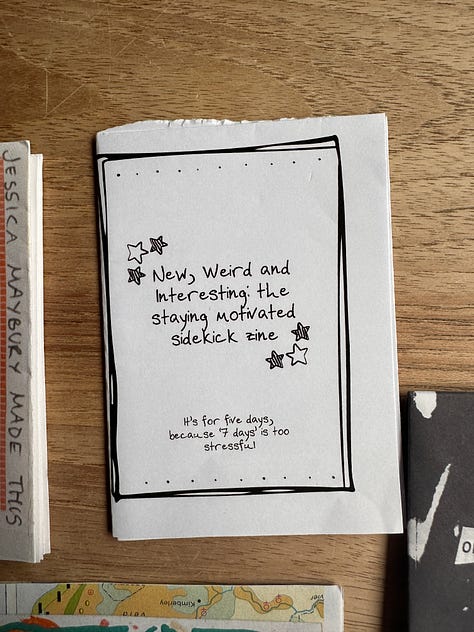 JESSICA MAYBURY MADE THIS
New, Weird and
Interesting: the
staying motivated
sidekick zine
It's for five days,
because '7 days' is too
stressful
Kimberley